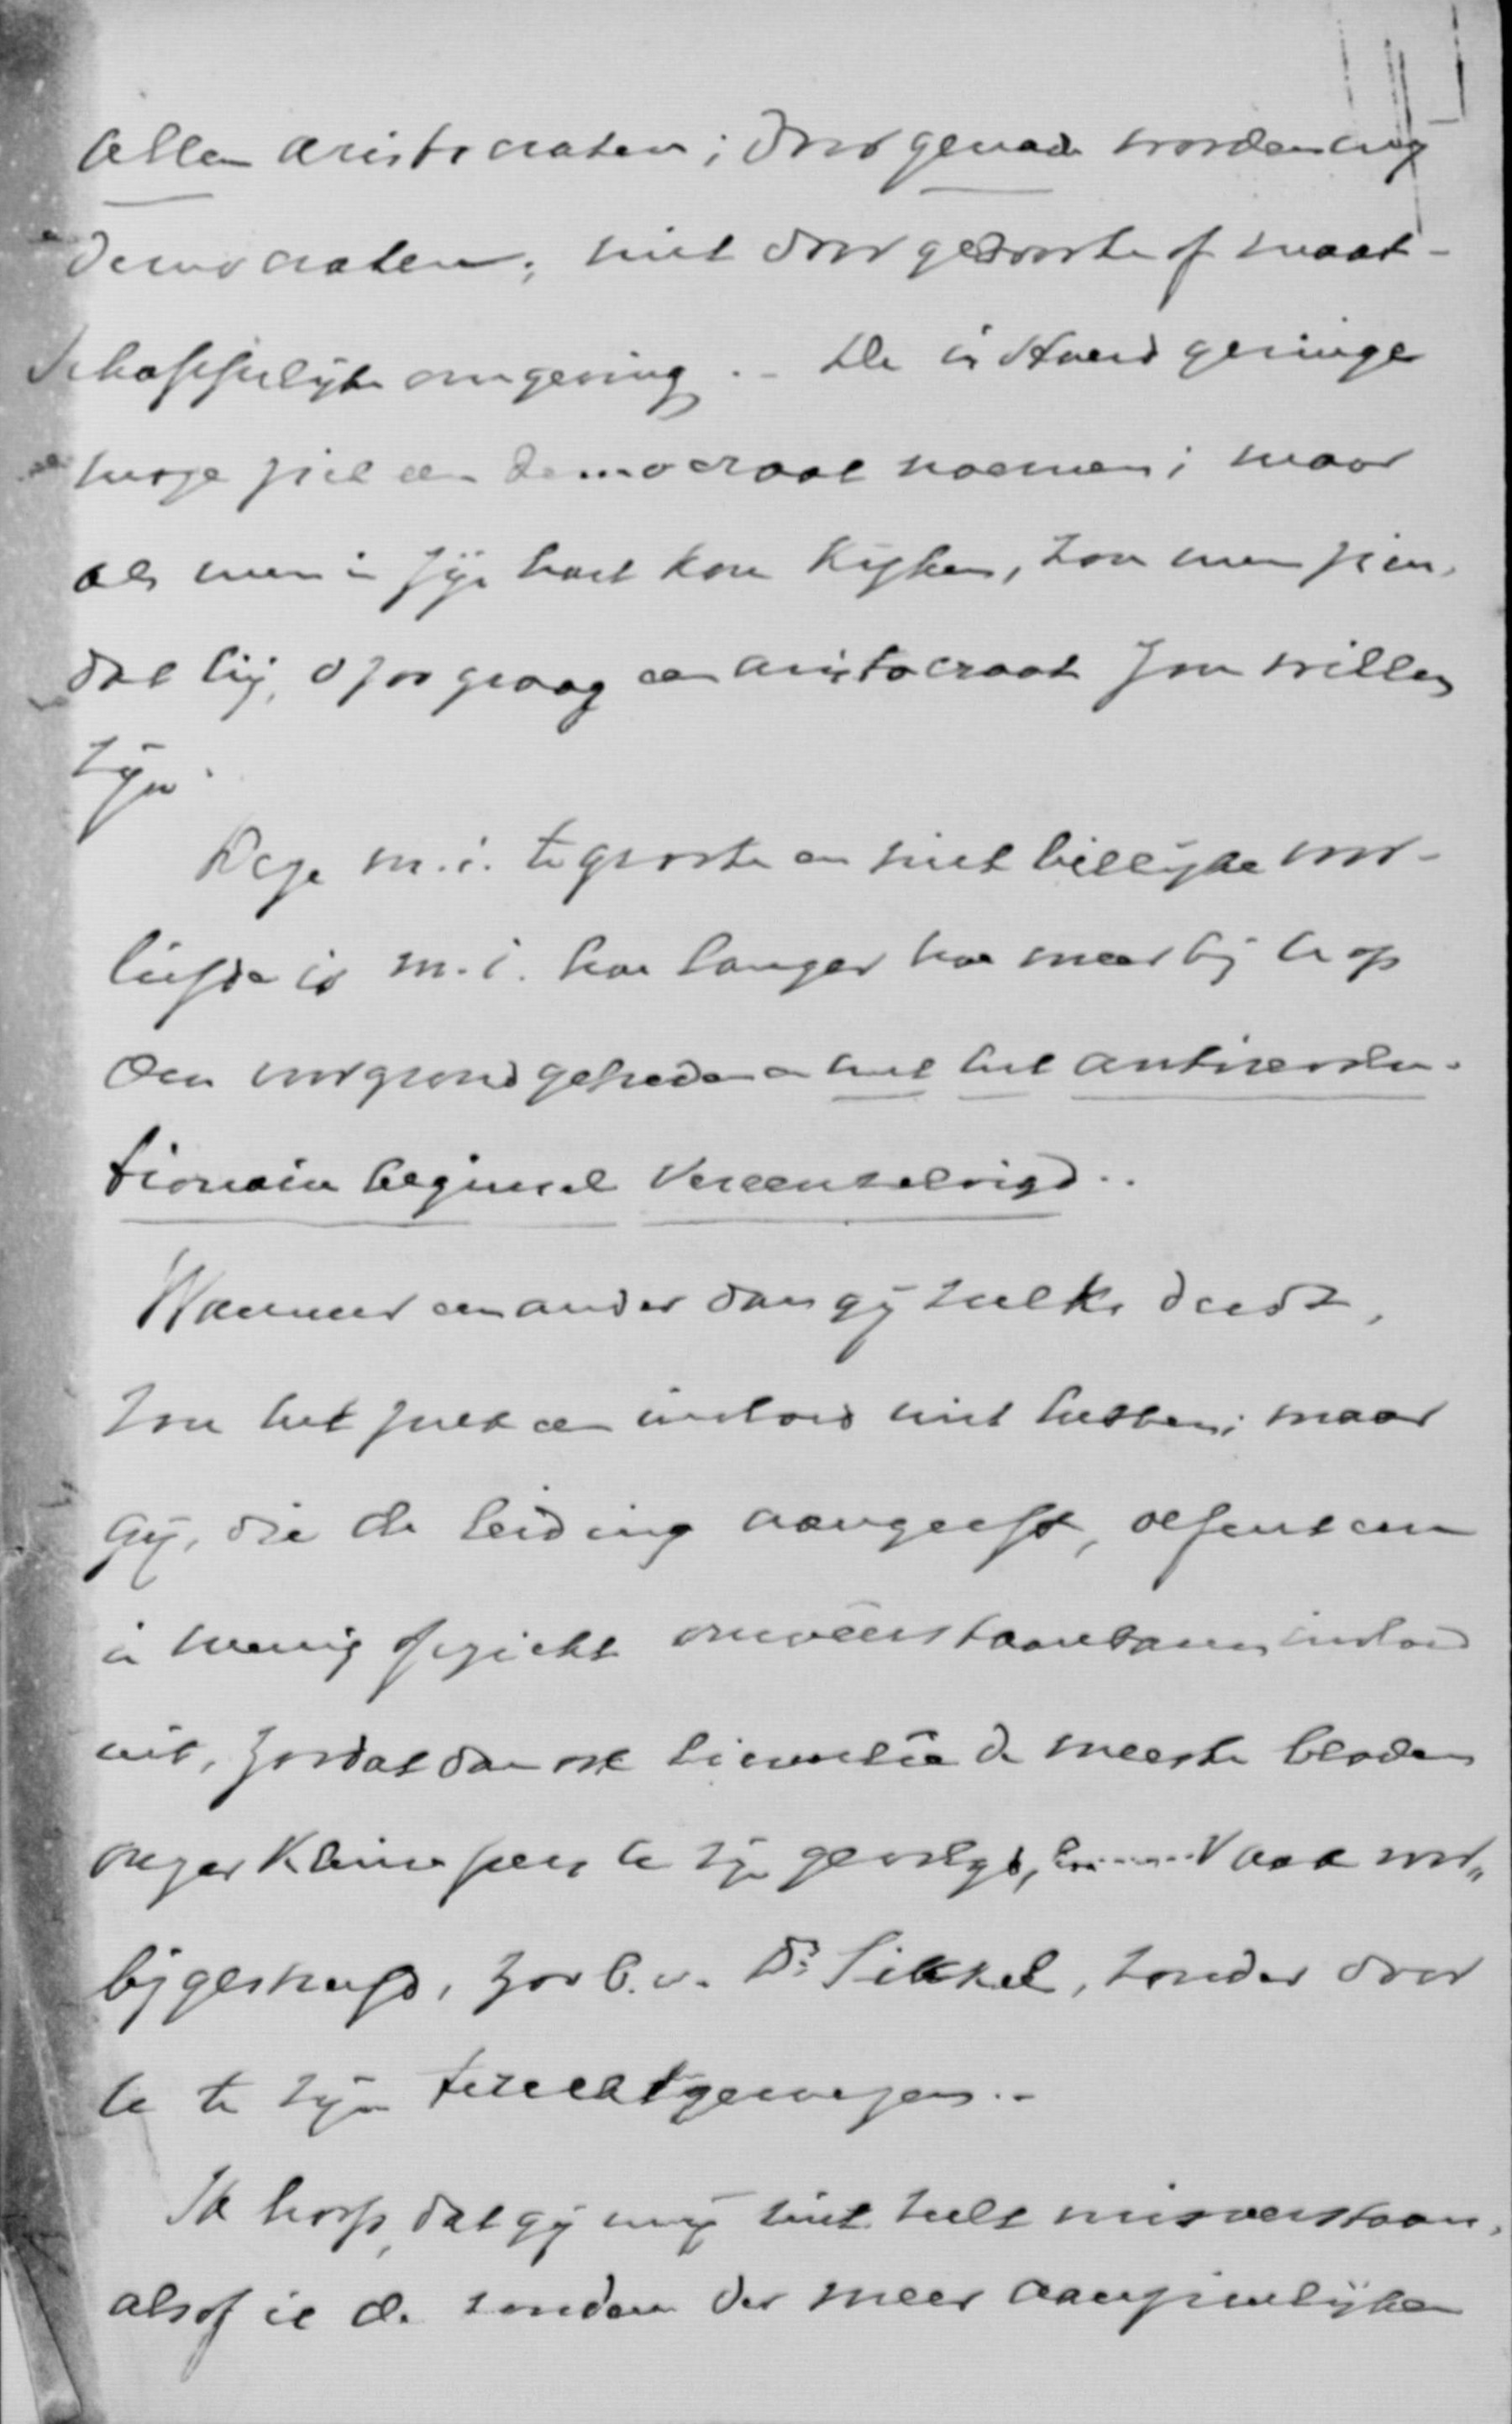 allen aristocraten; door genade worden wij
democraten; niet door geboorte of maat-
schappelijke omgeving. - De in stand geringe
moge zich een democraat noemen; maar
als men in zijn hart kon kijken, zou men zien,
dat hij, o zoo graag een aristocraat zou willen
zijn.
Deze m.i. te groote en niet billijke voor-
liefde is m.i. hoe langer hoe meer bij U op
den voorgrond getreden en met het antirevolu-
tionair beginsel vereenzelvigd..
Wanneer een ander dan gij zulks deedt,
zou het zulk een invloed niet hebben; maar
gij, die de leiding aangeeft, oefent een
in menig opzicht onweerstaanbaren invloed
uit, zoodat dan ook hierin de meeste bladen
onzer kleine pers U zijn gevolgd, vaak voor„
bijgestreefd, zoo b.v. Ds Sikkel, zonder door
U te zijn terechtgewezen. -
Ik hoop, dat gij mij niet zult misverstaan,
alsof ik de zonden der meer aanzienlijken